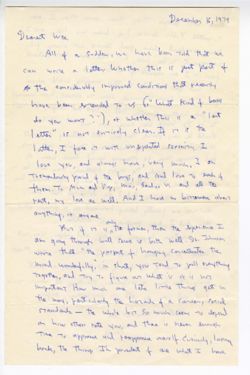 December 16, 1979
Dearest
All of a sudden, we have been told that we
can write a letter. Whether this is just part of
the considerably improved conditions that recently
have been extended to us ("What kind of books
do you want?"), or whether this is a "last
letter" is not entirely clear. If it is the
latter, I face it with unexpected serenity. I
love you, and always have, very much, I am
tremendously proud of the boys, and send love to each of
them. To Mom and
rest, my love as well. And I have no bitterness about
anything, or anyone.
But if it is only the former, then the experience I
am going through will serve us both well. Dr. Johnson
wrote that "the prospect of hanging concentrates the
mind wonderfully," in that, you tend to pull everything
together, and try to figure out what is or is not
important. How much one lets little things get in
the way, particularly the hazards of a career, social
standards — the whole lot. So much seems to depend
on how others rate you, and there is never enough
time to
back, the things I'm proudest of are what I have